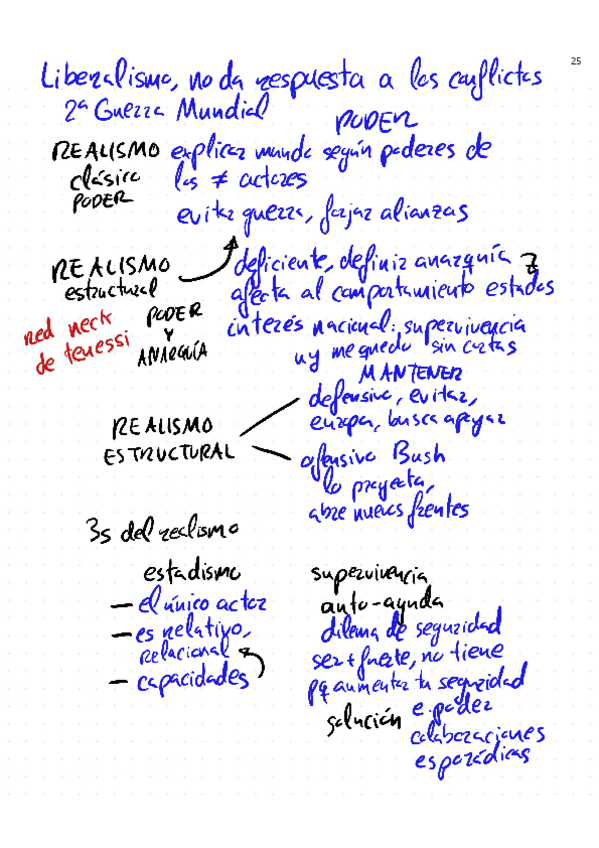 25
Liberalismo, no da respuesta a los conflictos
2ª Guerra Mundial
PODER
REALISMO explicar mundo según poderes de
clásico los ≠ actores
PODER
evitar guerra, forjar alianzas
REALISMO deficiente, definir anarquía
estructural afecta al comportamiento estados
red neck PODER interés nacional: supervivencia
de tenessi Y uy me quedo sin cartas
ANARQUÍA
MANTENER
defensivo, evitar,
REALISMO europa, busca apoyar
ESTRUCTURAL
ofensivo Bush
lo proyecta,
abre nuevos frentes
3s del realismo
estadismo
– el único actor
– es relativo,
relacional
– capacidades
supervivencia
auto-ayuda
dilema de seguridad
ser + fuerte, no tiene
pq aumentar tu seguridad
solución e. poder
colaboraciones
esporádicas